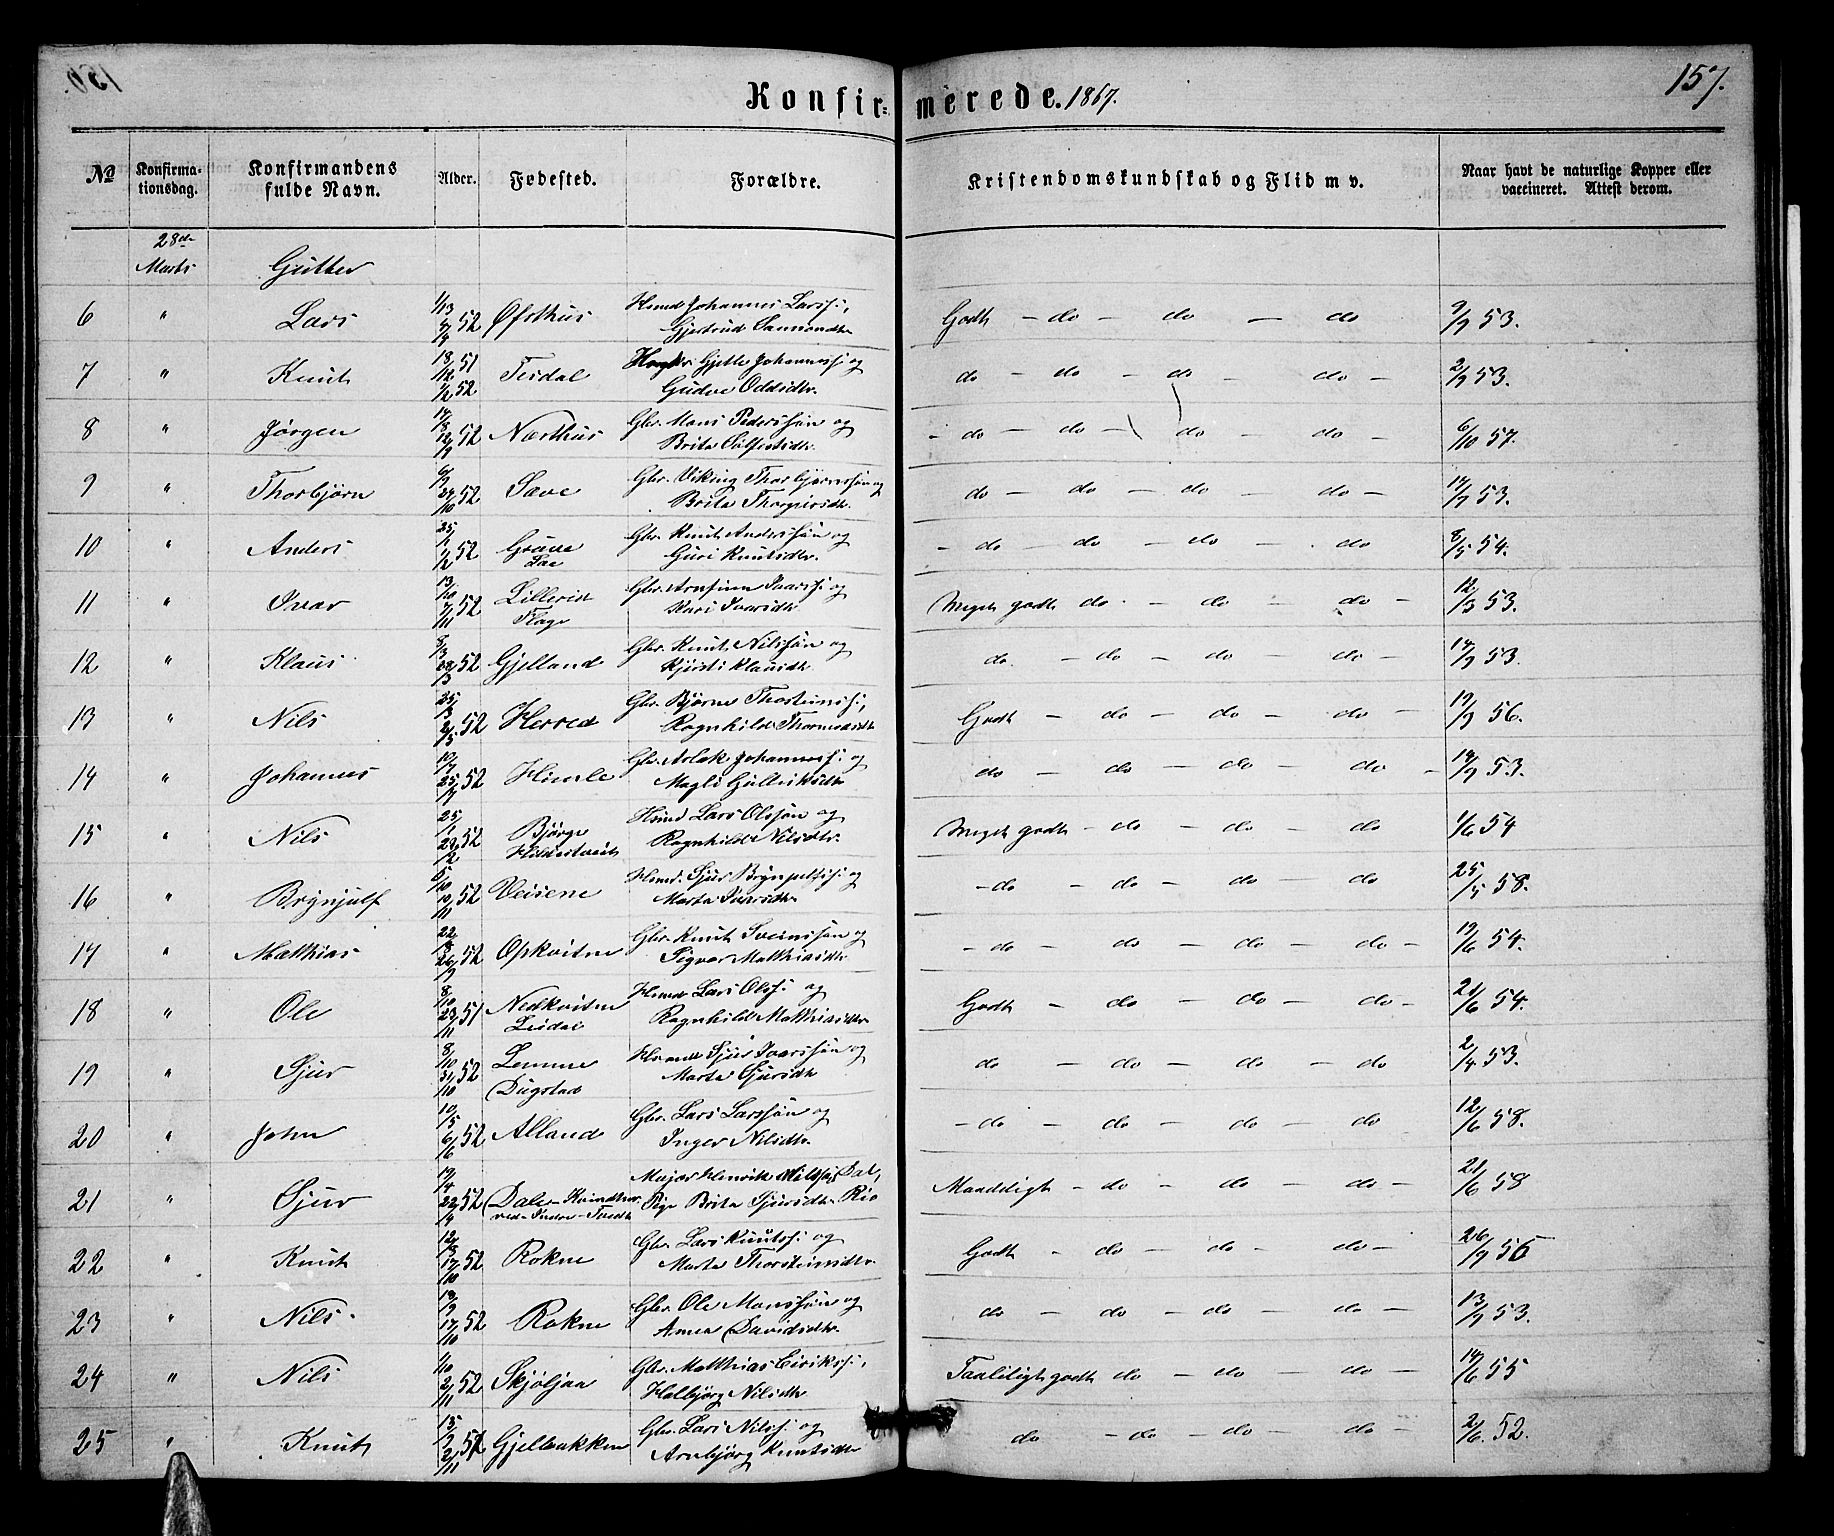 156.
Konfirmerede. 1867.
157.
№
Konfirmationsdag.
Konfirmandens fulde Navn.
Alder.
Fødested.
Forældre.
Kristendomskundskab og Flid m v.
Naar havt de naturlige Kopper eller vaccineret. Attest derom.
28de Marts Gutter
6 " Lars 52 Øfsthus Huusmd Johannes Larss:, Gjertrud Godt - do - do - do 9/9 53.
7 " Knut 18/12 51 1/2 52 Tesdal Gjette Johanness: og Gudve Oddsdtr. do - do - do - do - 2/9 53.
8 " Jørgen 52 Nærthus Gbr. Mons Pederssøn og Brita - do - do - do - do - 6/10 57.
9 " Thorbjørn 52 Save Gbr. Viking Thorbjørnssøn og Brita Thorgirsdtr. do - do - do - do - 14/9 53.
10 " Anders 25/1 1/2 52 Grove Gbr. Knut Anderssøn og Guri Knutsdtr. - do - do - do - do 8/5 54.
11 " Ivar 13/10 7/11 52 Lillerid Flage Gbr. Arnfinn Ivarss: og Kari Ivarsdtr Meget godt do - do - do - 12/3 53.
12 " Klaus 52 Gjelland Gbr. Knut Nilssøn og Kjersti Klausdtr. do. - do - do - do - 14/9 53.
13 " Nils 52 Herred Gbr. Bjørne Thosteinss:, Ragnhild Godt - do - do - do - 19/9 56.
14 " Johannes 52 Himle Gbr. Aslak Johanness: og Magli Gulleiksdtr do - do - do - do - 14/9 53.
15 " Nils 25/1 52 Bjørge Hildestveit Huusmd. Lars Olssøn og Ragnhild Nilsdtr. Meget godt - do - do - do 1/6 54
16 " Brynjulf 5/10 10/11 52 Veisene Sjur Brynjulfss: og Marta Ivarsdtr - do - do - do - do 25/5 58.
17 " Matthias 52 Opkvitne Gbr. Knut Sveinssøn og Sigvor Matthiasdtr - do - do - do - do - 19/6 54.
18 " Ole 8/10 23/11 51 Nedkvitne Huusmd Lars Olss: og Ragnhild Matthiasdtr Godt - do - do - do - 21/6 54.
19 " Sjur 8/10 31/10 52 Lemme Dugstad Sjur Ivarssøn og Marta Sjursdtr do - do - do - do 2/4 53.
20 " John 10/5 6/6 52 Alland Gbr. Lars Larssøn og Inger Nilsdtr. - do - do - do - do 12/6 58.
21 " Sjur 52 Dale Major Henrik Dal, Pige Brita Sjursdtr Rio Maadeligt - do - do - do - 21/6 58
22 " Knut 52 Rokne Gbr. Lars Knutss: og Marta Thorsteinsdtr. Godt - do - do - do - 26/9 56
23 " Nils 52 Rokne Gbr. Ole Monssøn og Anna Davidsdtr. do - do - do - do - 13/9 53.
24 " Nils 1/10 2/11 52 Skjøljaa Gbr. Matthias Eirikss:, Halbjørg Nilsdtr Taaleligt godt do - do - do - 14/6 55
25 " Knut 52 Gjelbakken Gbr. Lars Nilss: og Arnbjørg Knutsdtr do - do - do - do - 2/6. 52.